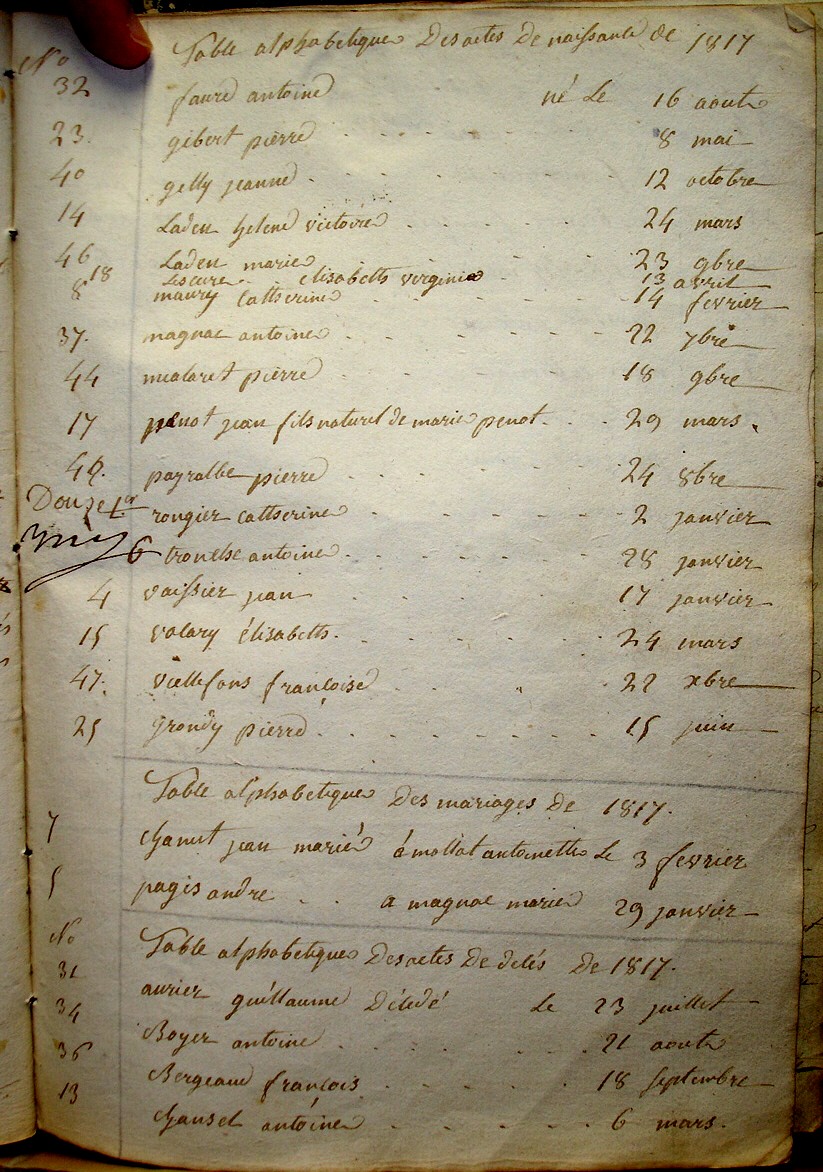 No Table alphabetique Des actes De naissance de 1817
32 faure antoine né Le 16 aout
23. gibert pierre 8 mai
40 gelly jeanne 12 octobre
14 Laden helene victoire 24 mars
46 Laden marie 23 9bre
18 Lescure elisabeth virginie 13 avril
8 maury catherine 14 fevrier
37. magnac antoine 22 7bre
44 mealaret pierre 18 9bre
17 penot jean fils naturel de marie penot. 29 mars.
payralbe pierre 24 8bre
rongier catherine 2 janvier
6 tronche antoine 28 janvier
4 vaissier jean 17 janvier
15 valary élisabeth. 24 mars
47. viellefons francoise 22 xbre
25 grondy pierre 15 juin
Table alphabetique Des mariages De 1817.
7 chanut jean marié à mollat antoinette Le 3 fevrier
5 pagis andre a magnac marie 29 janvier
No Table alphabetique Des actes De décés De 1817.
31 aurier guillaume Décedé Le 23 juillet
34 Boyer antoine 21 aout
36 Bergeaud francois 18 septembre
13 chansel antoine 6 mars.